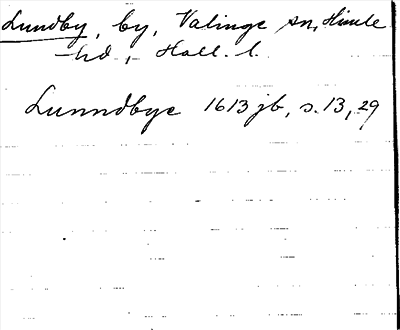 Lundby, by, Valinge sn, Himle
hd, Hall. l.
Lunndbye 1613 jb, s. 13, 29